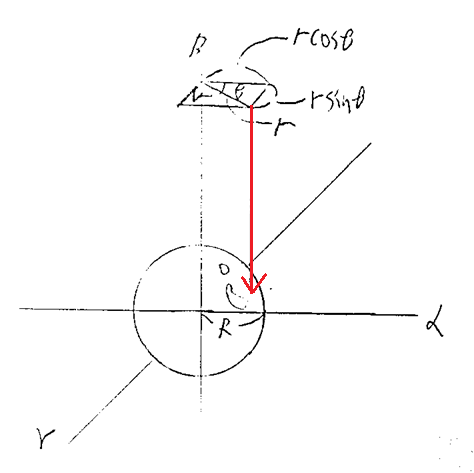 β
r cosθ
θ
r sinθ
r
O
R
α
γ